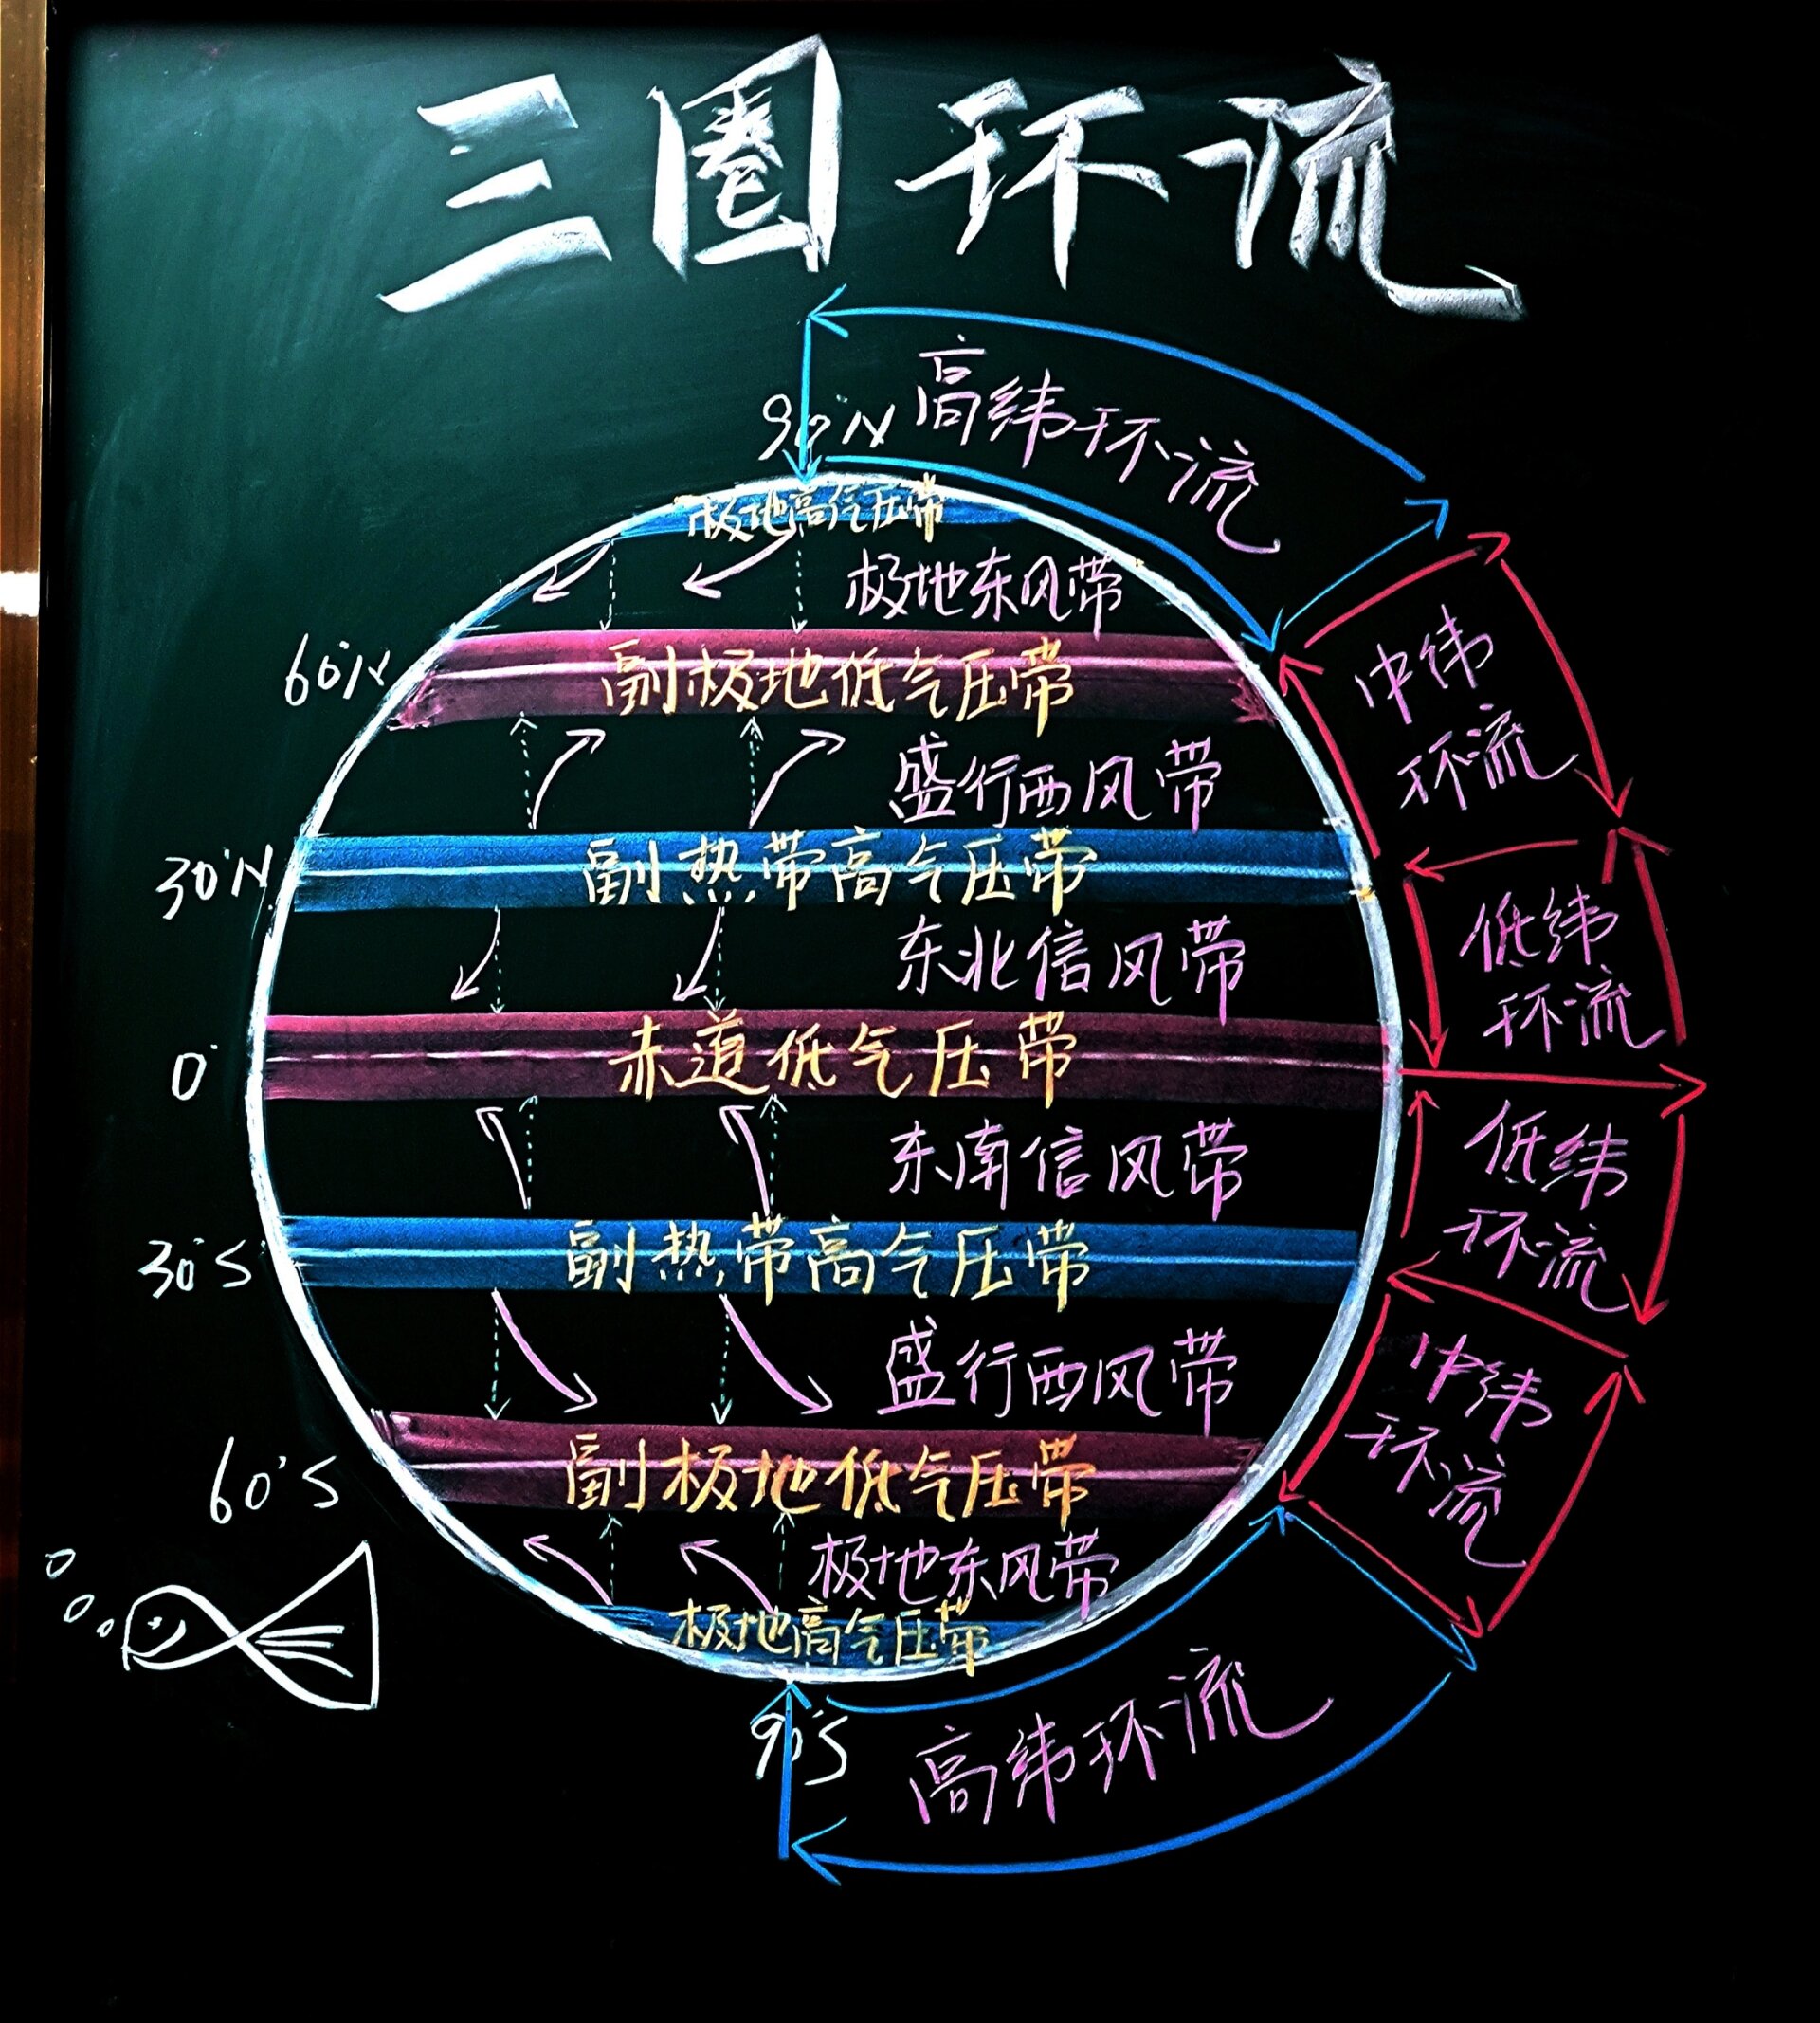 三圈环流
90°N
高纬环流
极地高气压带
极地东风带
60°N
副极地低气压带
中纬
环流
盛行西风带
30°N
副热带高气压带
低纬
环流
东北信风带
0°
赤道低气压带
东南信风带
低纬
环流
30°S
副热带高气压带
盛行西风带
中纬
环流
60°S
副极地低气压带
极地东风带
极地高气压带
90°S
高纬环流